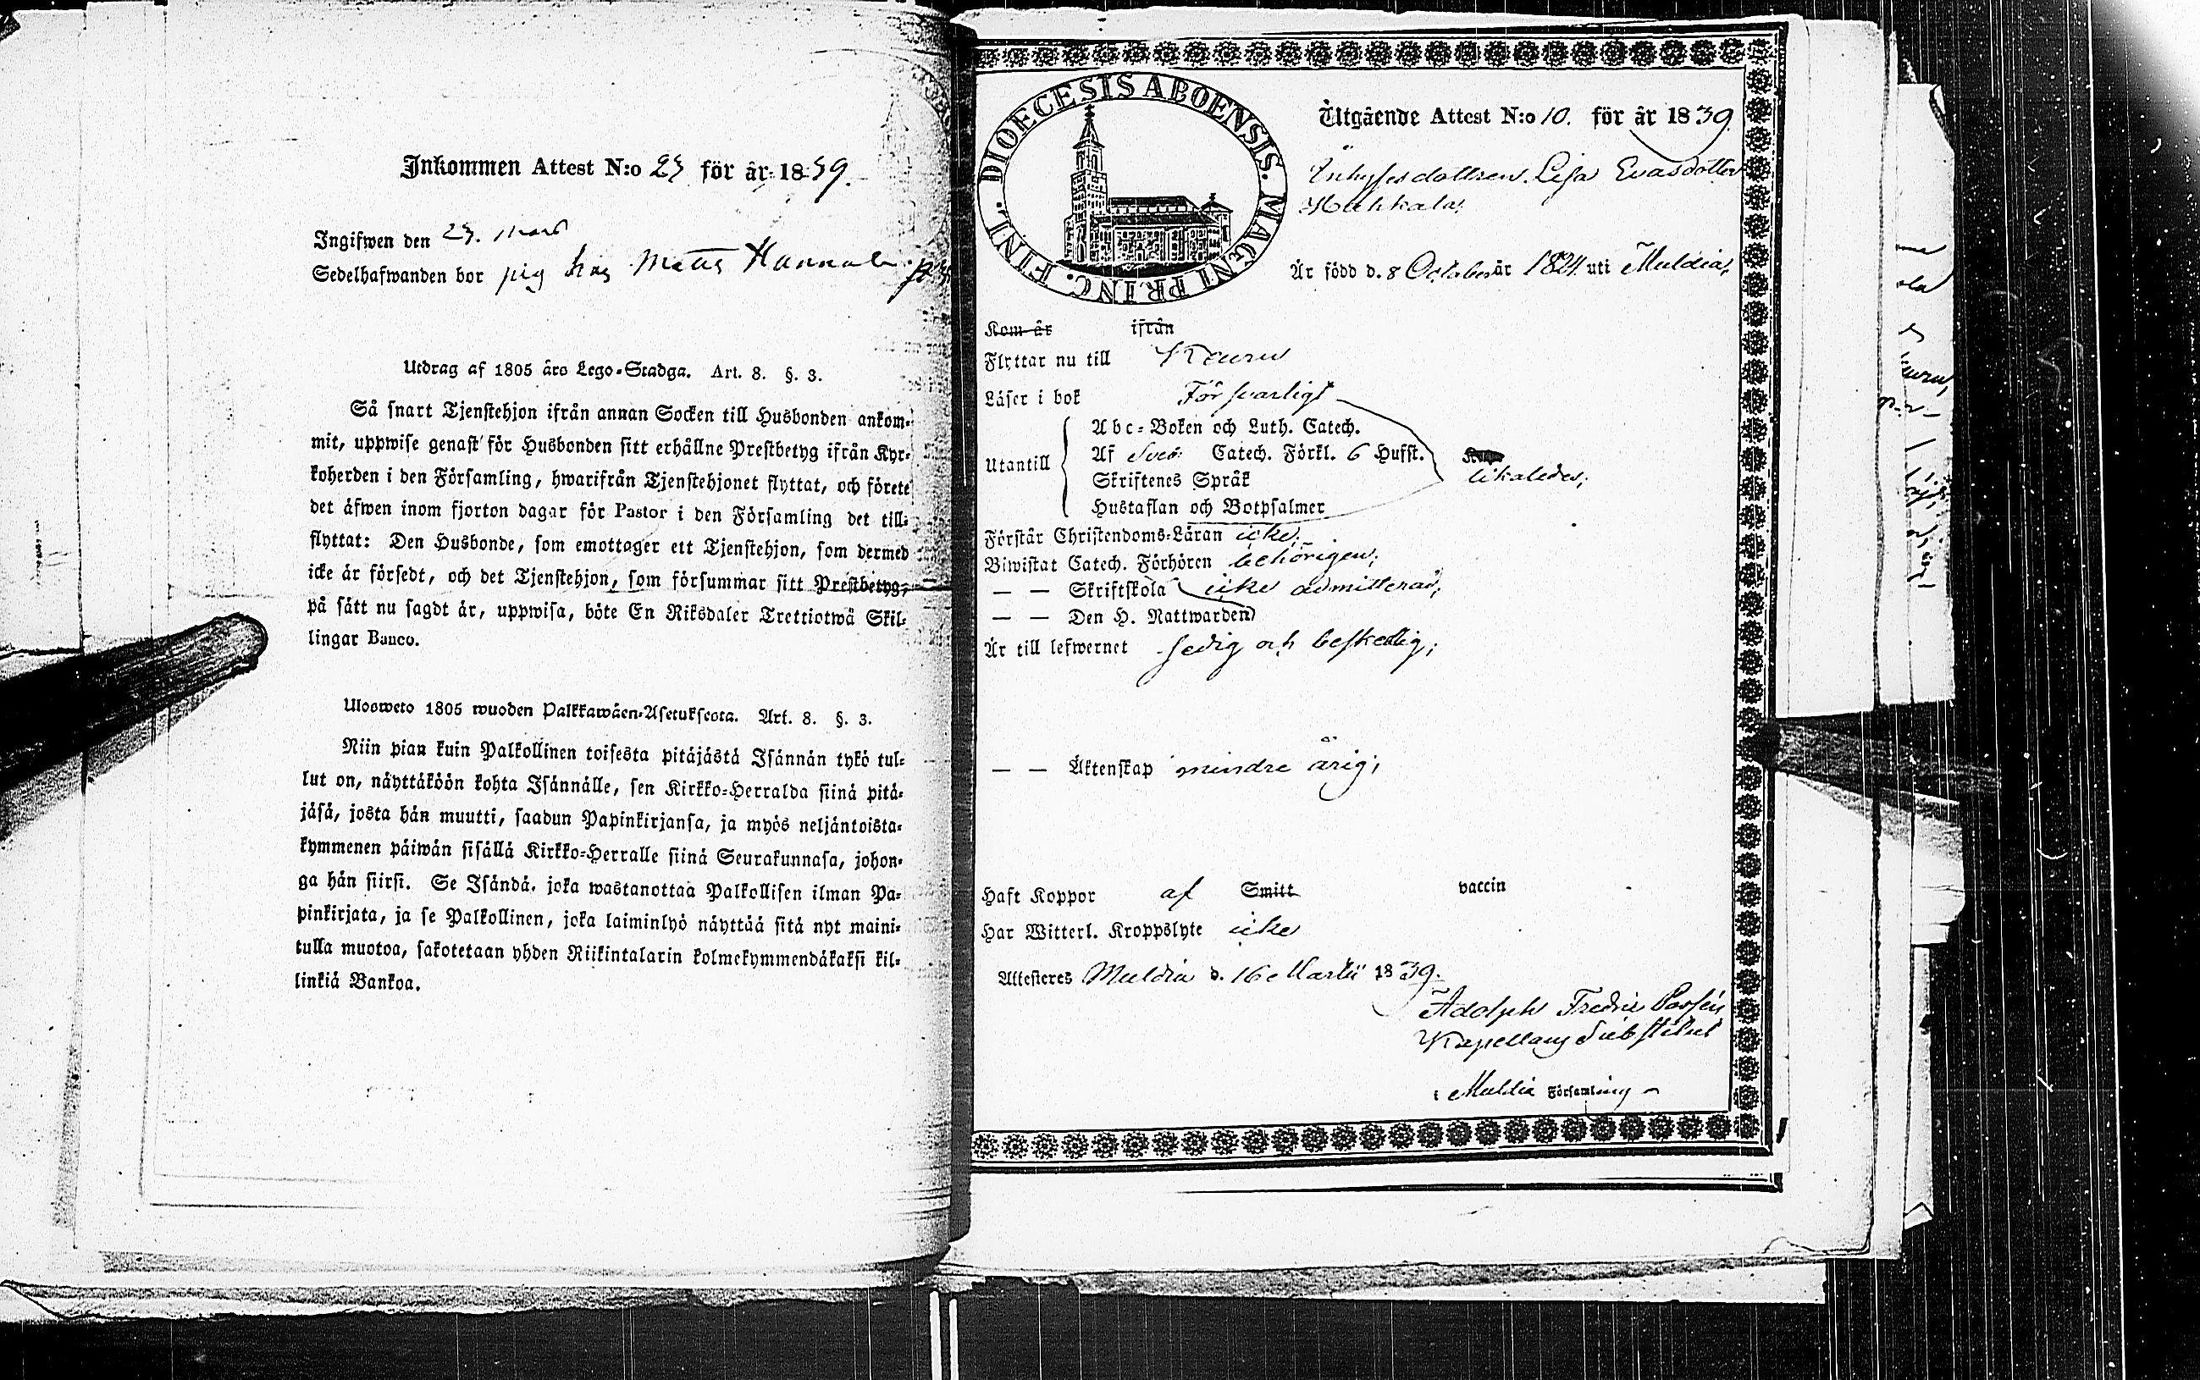 Inkommen Attest N:o 23 för år 1839.
Ingifwen den 23. Mars
Sedelhafwanden bor pig hos Matts
Utdrag af 1805 års Lego-Stadga. Art. 8. §. 3.
Så snart Tjenstehjon ifrån annan Socken till Husbonden ankom-
mit, uppwise genast för Husbonden sitt erhållne Prestbetyg ifrån Kyr-
koherden i den Församling, hwarifrån Tjenstehjonet flyttat, och förete
det äfwen inom fjorton dagar för Pastor i den Församling det till-
flyttat: Den Husbonde, som emottager ett Tjenstehjon, som dermed
icke är försedt, och det Tjenstehjon, som försummar sitt Prestbetyg,
på sätt nu sagdt är, uppwisa, böte En Riksdaler Trettiotwå Skil-
lingar Banco.
Ulosweto 1805 wuoden Palkkawäen-Asetuksesta. Art. 8. §. 3.
Niin pian kuin Palkollinen toisesta pitäjästä Isännän tykö tul-
lut on, näyttäköön kohta Isännälle, sen Kirkko-Herralda siinä pitä-
jäsä, josta hän muutti, saadun Papinkirjansa, ja myös neljäntoista-
kymmenen päiwän sisällä Kirkko-Herralle siinä Seurakunnasa, johon-
ga hän siirsi. Se Isändä, joka wastanottaa Palkollisen ilman Pa-
pinkirjata, ja se Palkollinen, joka laiminlyö näyttää sitä nyt maini-
tulla muotoa, sakotetaan yhden Riikintalarin kolmekymmendäkaksi kil-
linkiä Bankoa.
DIOECESIS ABOENSIS. MAGNI PRINC. FINL.
Utgående Attest N:o 10. för år 1839
Inhysesdottren Lisa Evasdotter
Huhkala,
Är född d. 8 October år 1824 uti Muldia,
Kom år ifrån
Flyttar nu till Keuru
Läser i bok Försvarligt
Abc-Boken och Luth. Catech.
Utantill Af Sveb. Catech. Förkl. 6 Hufst. likaledes;
Skriftenes Språk
Hustaflan och Botpsalmer
Förstår Christendoms-Läran icke;
Biwistat Catech. Förhören behörigen;
— — Skriftskola icke admitterad;
— — Den H. Nattwarden
Är till lefwernet sedig och beskedlig;
— — Äktenskap mindre årig;
Haft Koppor af Smitt vaccin
Har Witterl. Kroppslyte icke
Attesteres Muldia d. 16 Martii 1839.
Adolph Fredric
Kapellans Substitut
i Muldia Församling